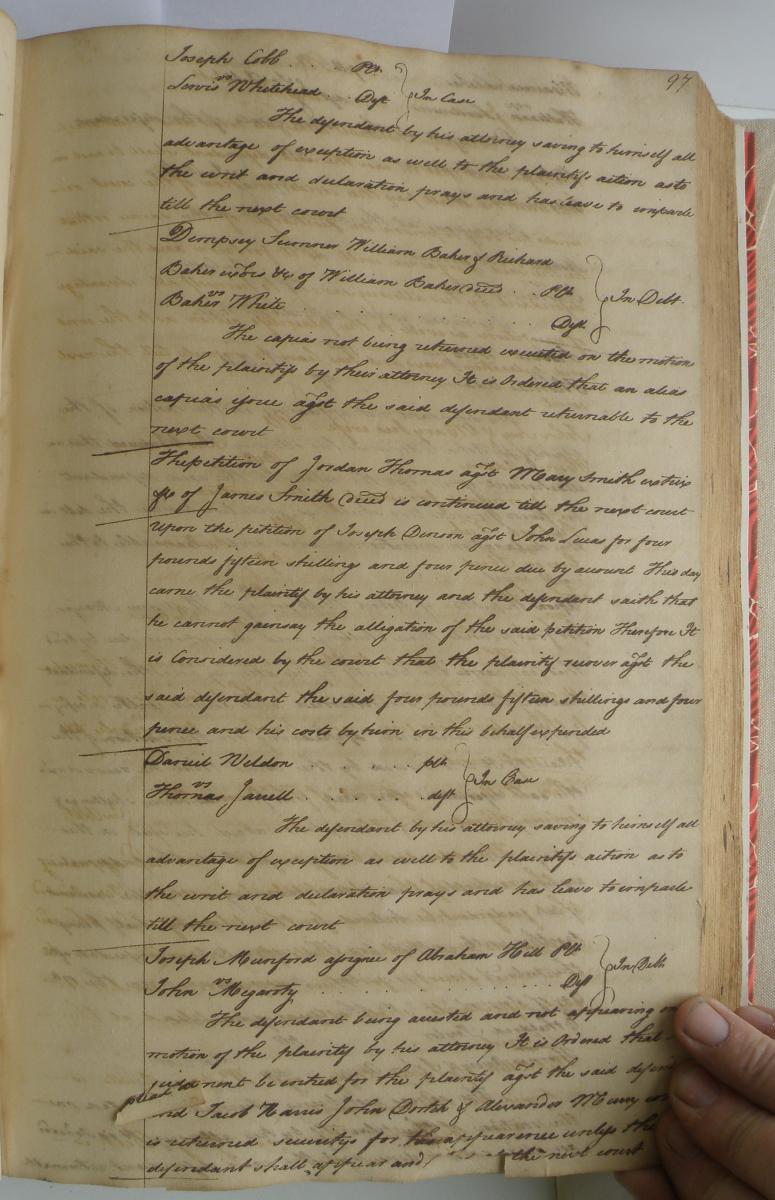 97
Joseph Cobb . . . Plt
vs } In Case
Lewis Whitehead . . Deft
The defendant by his attorney saving to himself all
advantage of exception as well to the plaintifs action as to
the writ and declaration prays and has leave to imparle
till the next court
Dempsey Sumner William Baker & Richard
Baker exors &c of William Baker deced . . Plts
vs } In Debt
Baker White . . . . . . . . Deft
The capias not being returned executed on the motion
of the plaintifs by their attorney It is Ordered that an alias
capias issue agst the said defendant returnable to the
next court
The petition of Jordan Thomas agst Mary Smith extrix
&c of James Smith deced is continued till the next court
Upon the petition of Joseph Denson agst John Lucas for four
pounds fifteen shillings and four pence due by account This day
came the plaintif by his attorney and the defendant saith that
he cannot gainsay the allegation of the said petition Therefore It
is Considered by the court that the plaintif recover agst the
said defendant the said four pounds fifteen shillings and four
pence and his costs by him in this behalf expended
Daniel Weldon . . . . . . plt
vs } In Case
Thomas Jarrell . . . . . . deft
The defendant by his attorney saving to himself all
advantage of exception as well to the plaintifs action as to
the writ and declaration prays and has leave to imparle
till the next court
Joseph Munford assignee of Abraham Hill Plt
vs } In Debt
John Megarity . . . . . . . . . . Deft
The defendant being arrested and not appearing on
motion of the plaintif by his attorney It is Ordered that
judgment be entred for the plaintif agst the said
and Jacob Harris John Dortch & Alexander
is returned securitys for his appearence unless the
defendant shall appear and the next court